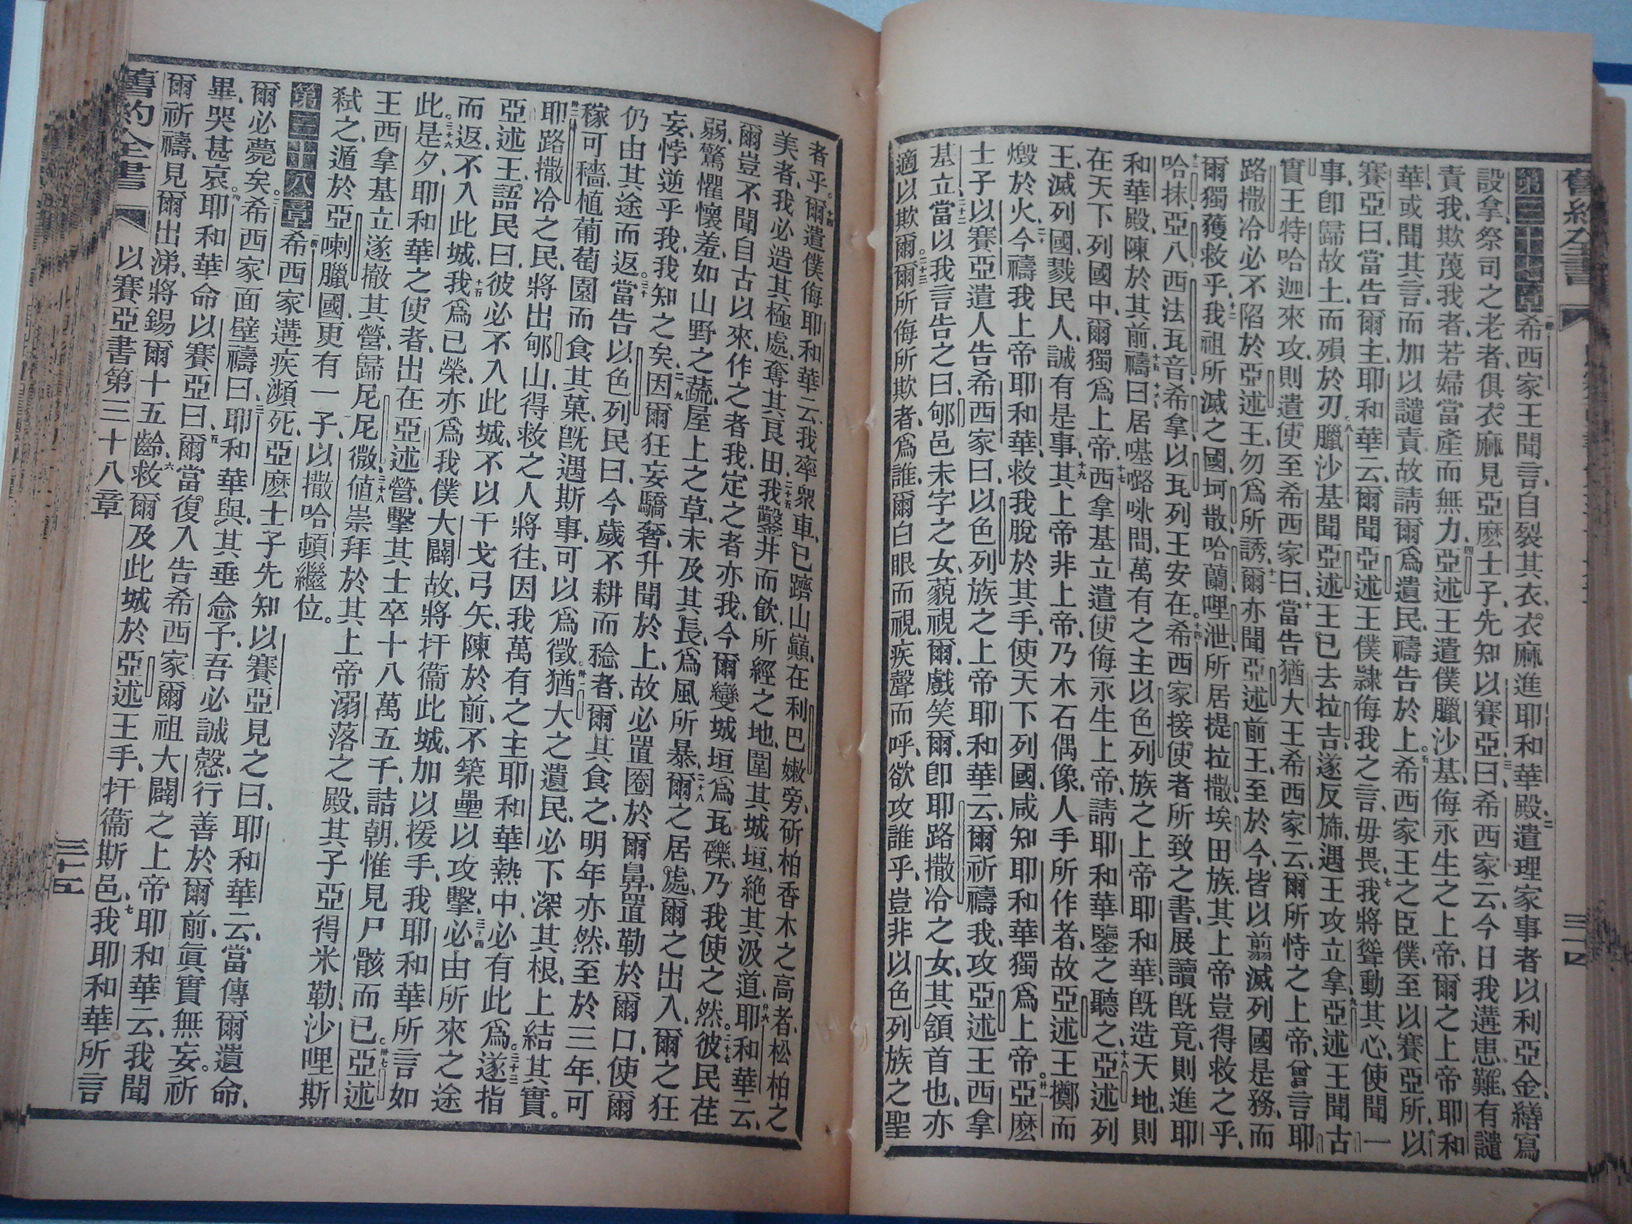 舊約全書 三十四
第三十七章 希西家王聞言、自裂其衣、衣麻進耶和華殿、遣理家事者以利亞金、繕寫
設拿、祭司之老者、俱衣麻、見亞麽士子先知以賽亞曰、希西家云、今日我遘患難、有譴
責我、欺茂我者、若婦當產而無力、亞述王遣僕臘沙基、侮永生之上帝、爾之上帝耶和
華或聞其言、而加以譴責、故請爾爲遺民禱告於上、希西家王之臣僕至以賽亞所、以
賽亞曰、當告爾主、耶和華云、爾聞亞述王僕隸侮我之言、毋畏、我將聳動其心、使聞一
事、卽歸故土、而殞於刃、臘沙基聞亞述王已去拉吉、遂反旆、遇王攻立拿、亞述王聞古
實王特哈迦來攻、則遣使至希西家曰、當告猶大王希西家云、爾所恃之上帝、曾言耶
路撒冷必不陷於亞述王、勿爲所誘、爾亦聞亞述前王、至於今、皆以翦滅列國是務、而
爾獨獲救乎、我祖所滅之國、坷散哈蘭哩泄所居提拉撒埃田族、其上帝豈得救之乎、
哈抹亞八西法瓦音希拿以瓦列王安在、希西家接使者所致之書、展讀旣竟、則進耶
和華殿、陳於其前、禱曰、居𠼻㗭咏間、萬有之主、以色列族之上帝耶和華、旣造天地、則
在天下列國中、爾獨爲上帝、西拿基立遣使侮永生上帝、請耶和華鑒之聽之、亞述列
王滅列國戮民人、誠有是事、其上帝非上帝、乃木石偶像、人手所作者、故亞述王擲而
燬於火、今禱我上帝耶和華、救我脫於其手、使天下列國、咸知耶和華獨爲上帝、亞麽
士子以賽亞遣人告希西家曰、以色列族之上帝耶和華云、爾祈禱我、攻亞述王西拿
基立、當以我言告之曰、郇邑未字之女、藐視爾、戲笑爾、卽耶路撒冷之女、其頷首也、亦
適以欺爾、爾所侮所欺者、爲誰、爾白眼而視、疾聲而呼、欲攻誰乎、豈非以色列族之聖
者乎、爾遣僕侮耶和華云、我率衆車、已躋山巔、在利巴嫩旁、斫柏香木之高者、松柏之
美者、我必造其極處、奪其良田、我鑿井而飲、所經之地、圍其城垣、絕其汲道、耶和華云、
爾豈不聞自古以來、作之者我、定之者亦我、今爾變城垣爲瓦礫、乃我使之然、彼民荏
弱、驚懼懷羞、如山野之蔬、屋上之草、未及其長、爲風所暴、爾之居處、爾之出入、爾之狂
妄、悖逆乎我、我知之矣、因爾狂妄驕奢、升聞於上、故必置圈於爾鼻、置勒於爾口、使爾
仍由其途而返、當告以色列民曰、今歲不耕而稔者、爾其食之、明年亦然、至於三年、可
稼可穡、植葡萄園而食其菓、旣遇斯事、可以爲徵、猶大之遺民、必下深其根、上結其實、
耶路撒冷之民、將出郇山得救之人將往、因我萬有之主耶和華熱中、必有此爲、遂指
亞述王語民曰、彼必不入此城、不以干戈弓矢、陳於前、不築壘以攻擊、必由所來之途
而返、不入此城、我爲已榮、亦爲我僕大闢故、將扞衞此城、加以援手、我耶和華所言如
此、是夕耶和華之使者、出在亞述營、擊其士卒十八萬五千、詰朝惟見尸骸而已、亞述
王西拿基立遂撤其營、歸尼尼微、値崇拜於其上帝溺落之殿、其子亞得米勒、沙哩斯
弒之、遁於亞喇臘國、更有一子、以撒哈頓繼位。
第三十八章 希西家遘疾瀕死、亞麽士子先知以賽亞見之曰、耶和華云、當傳爾遺命、
爾必薨矣、希西家面壁禱曰、耶和華與、其垂念予、吾必誠慤、行善於爾前、眞實無妄、祈
畢、哭甚哀、耶和華命以賽亞曰、爾當復入告希西家、爾祖大闢之上帝耶和華云、我聞
爾祈禱、見爾出涕、將錫爾十五齡、救爾及此城於亞述王手、扞衞斯邑、我耶和華所言
舊約全書 以賽亞書第三十八章 三十五